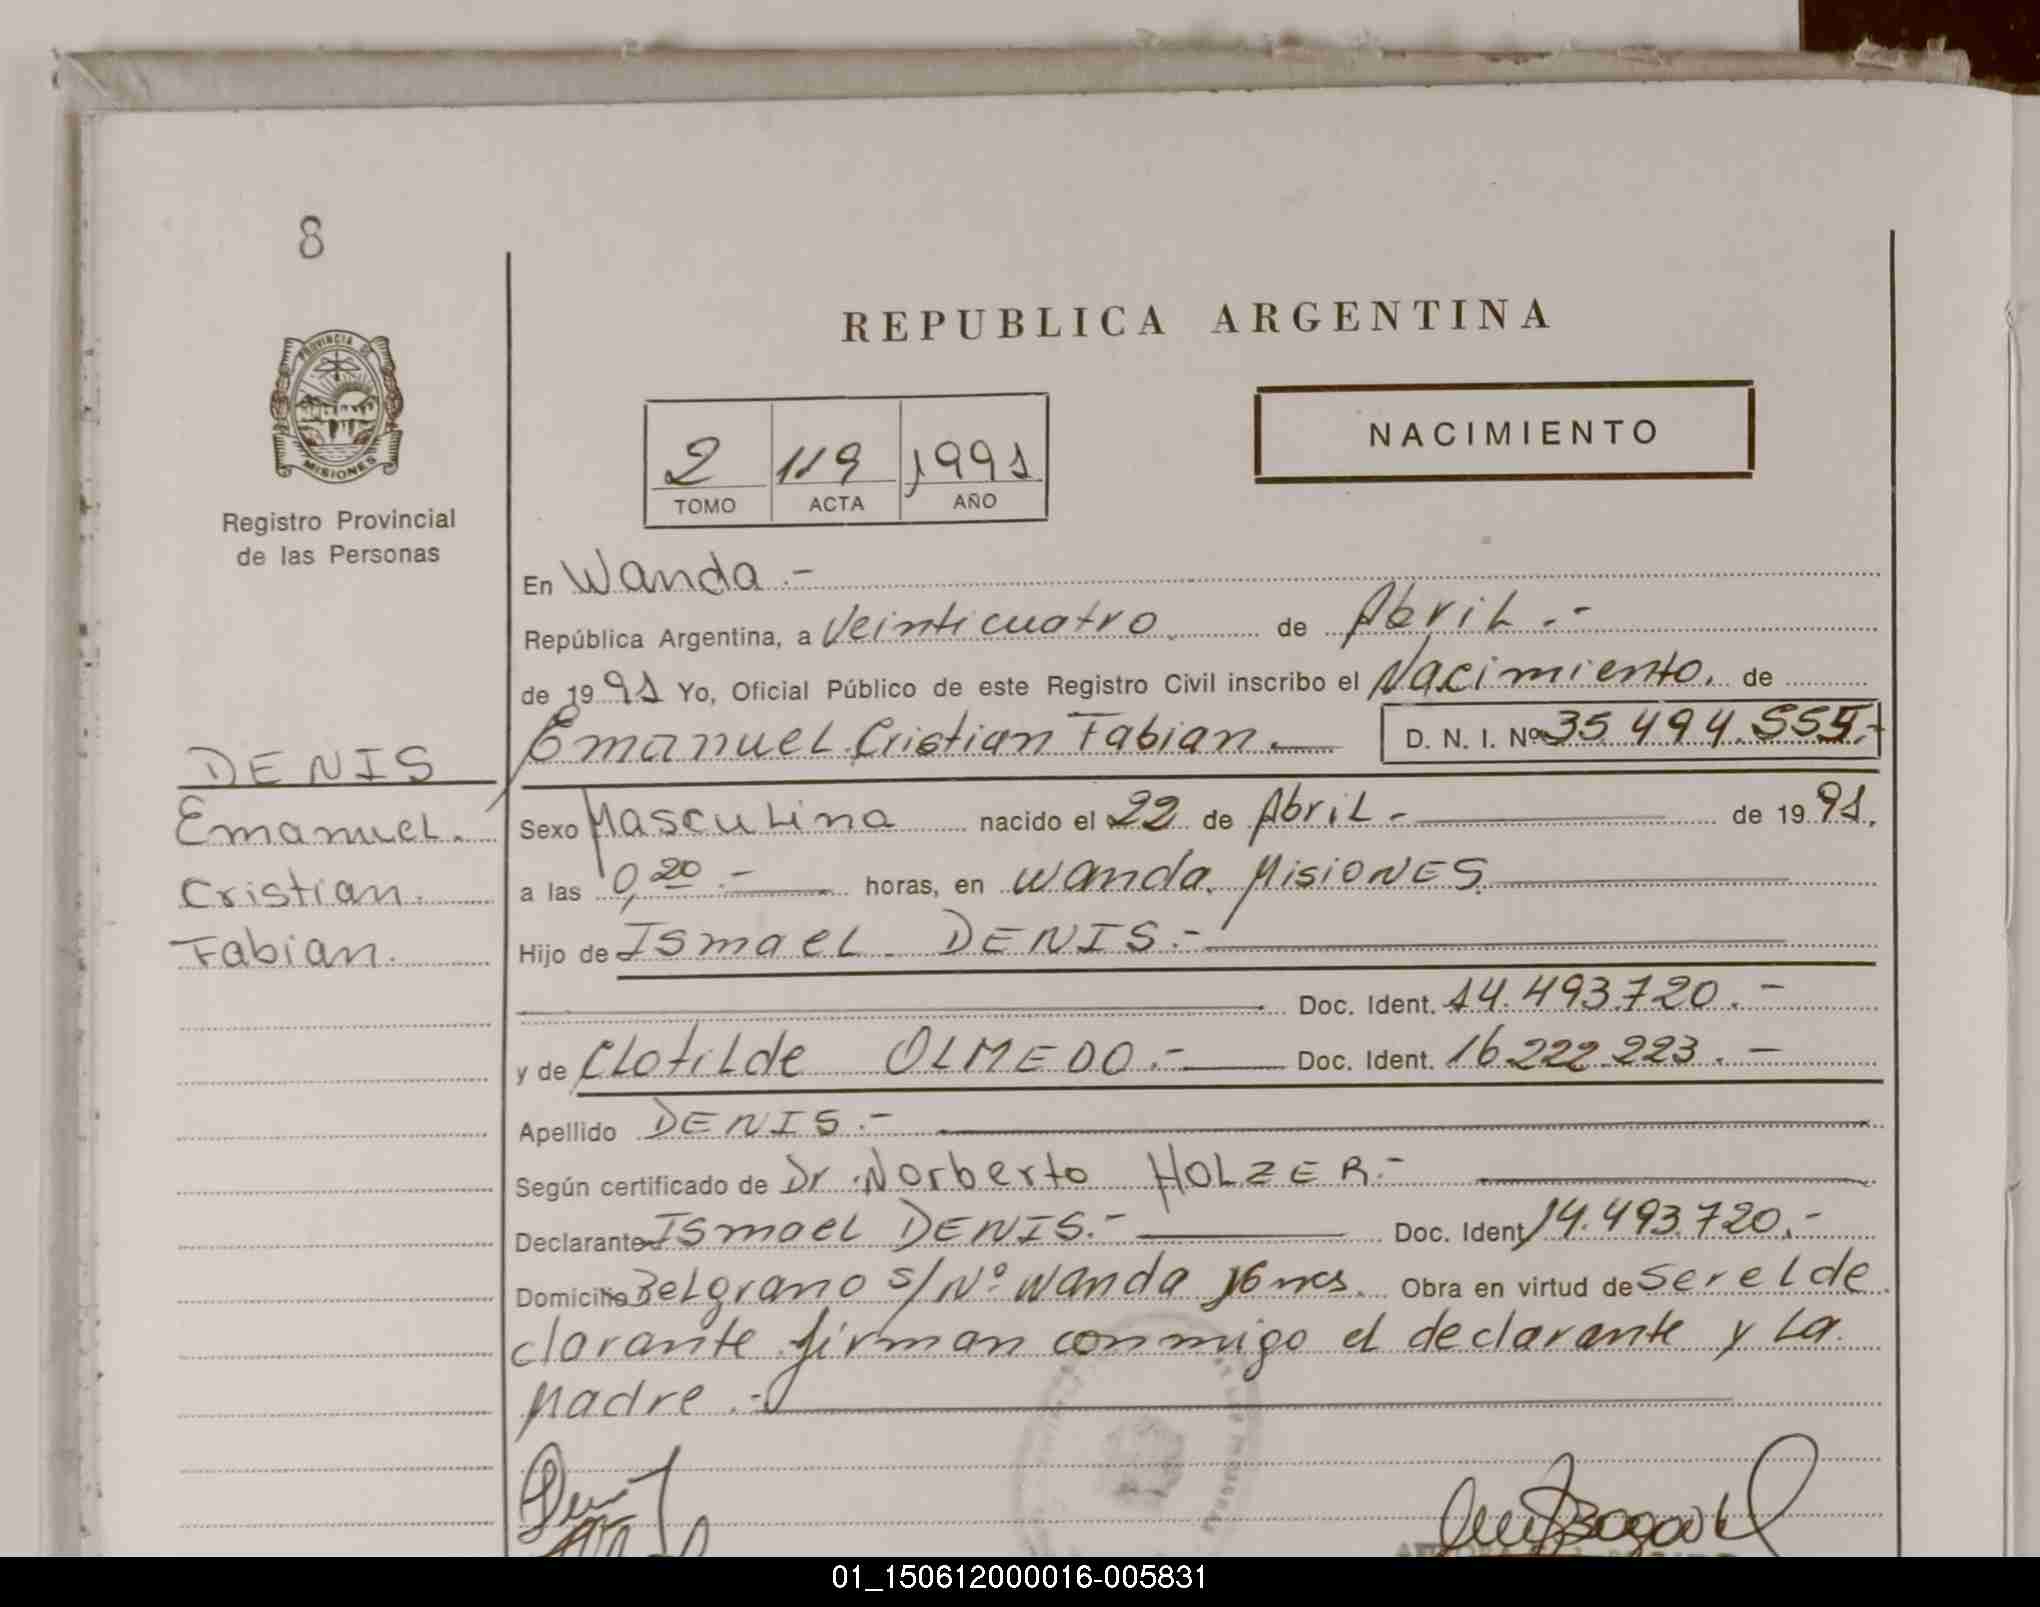 8
REPUBLICA ARGENTINA
PROVINCIA DE
MISIONES
NACIMIENTO
2 119 1991
TOMO ACTA AÑO
Registro Provincial
de las Personas
En Wanda.-
República Argentina, a Veinticuatro de Abril.-
de 1991 Yo, Oficial Público de este Registro Civil inscribo el Nacimiento. de
Emanuel Cristian Fabian. D. N. I. Nº 35 494.555.-
DENIS
Emanuel.
Cristian.
Fabian.
Sexo Masculino nacido el 22 de Abril.- de 1991.
a las 0,20.- horas, en Wanda. Misiones
Hijo de Ismael DENIS.-
Doc. Ident. 14.493.720.-
y de Clotilde OLMEDO.- Doc. Ident. 16.222.223.-
Apellido DENIS.-
Según certificado de Dr Norberto HOLZER.-
Declarante Ismael DENIS.- Doc. Ident 14.493.720.-
Domicilio Belgrano s/Nº Wanda Obra en virtud de ser el de
clarante firman conmigo el declarante y la
Madre.-
01_150612000016-005831